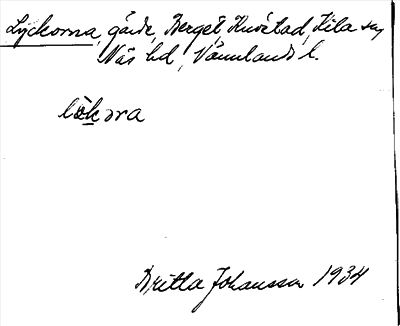 Lyckorna, gärde, Berget, Knöstad, Kila sn,
Näs hd, Värmlands l.
lökɔra
Britta Johansson 1934